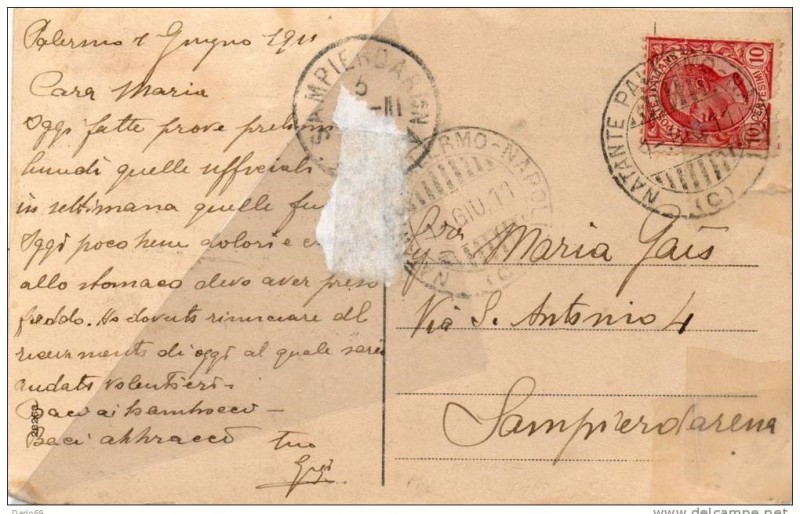 Palermo 1 Giugno 1911
Cara Maria
Oggi fatte prove prelimi
lunedì quelle ufficiali
in settimana quelle fu
Oggi poco bene dolori e
allo stomaco devo aver preso
freddo. Ho dovuto rinunciare al
ricevimento di oggi al quale sarei
andato volentieri.
Baci ai bambocci -
Baci abbracci
tuo
Gigi
26262
SAMPIERDARENA
6
-11
PALERMO-NAPOLI
GIU.11
(C)
NATANTE PALERMO
(C)
10
CENTESIMI
10
Maria Gais
Via S. Antonio 4
Sampierdarena
Dario69
delcampe.net